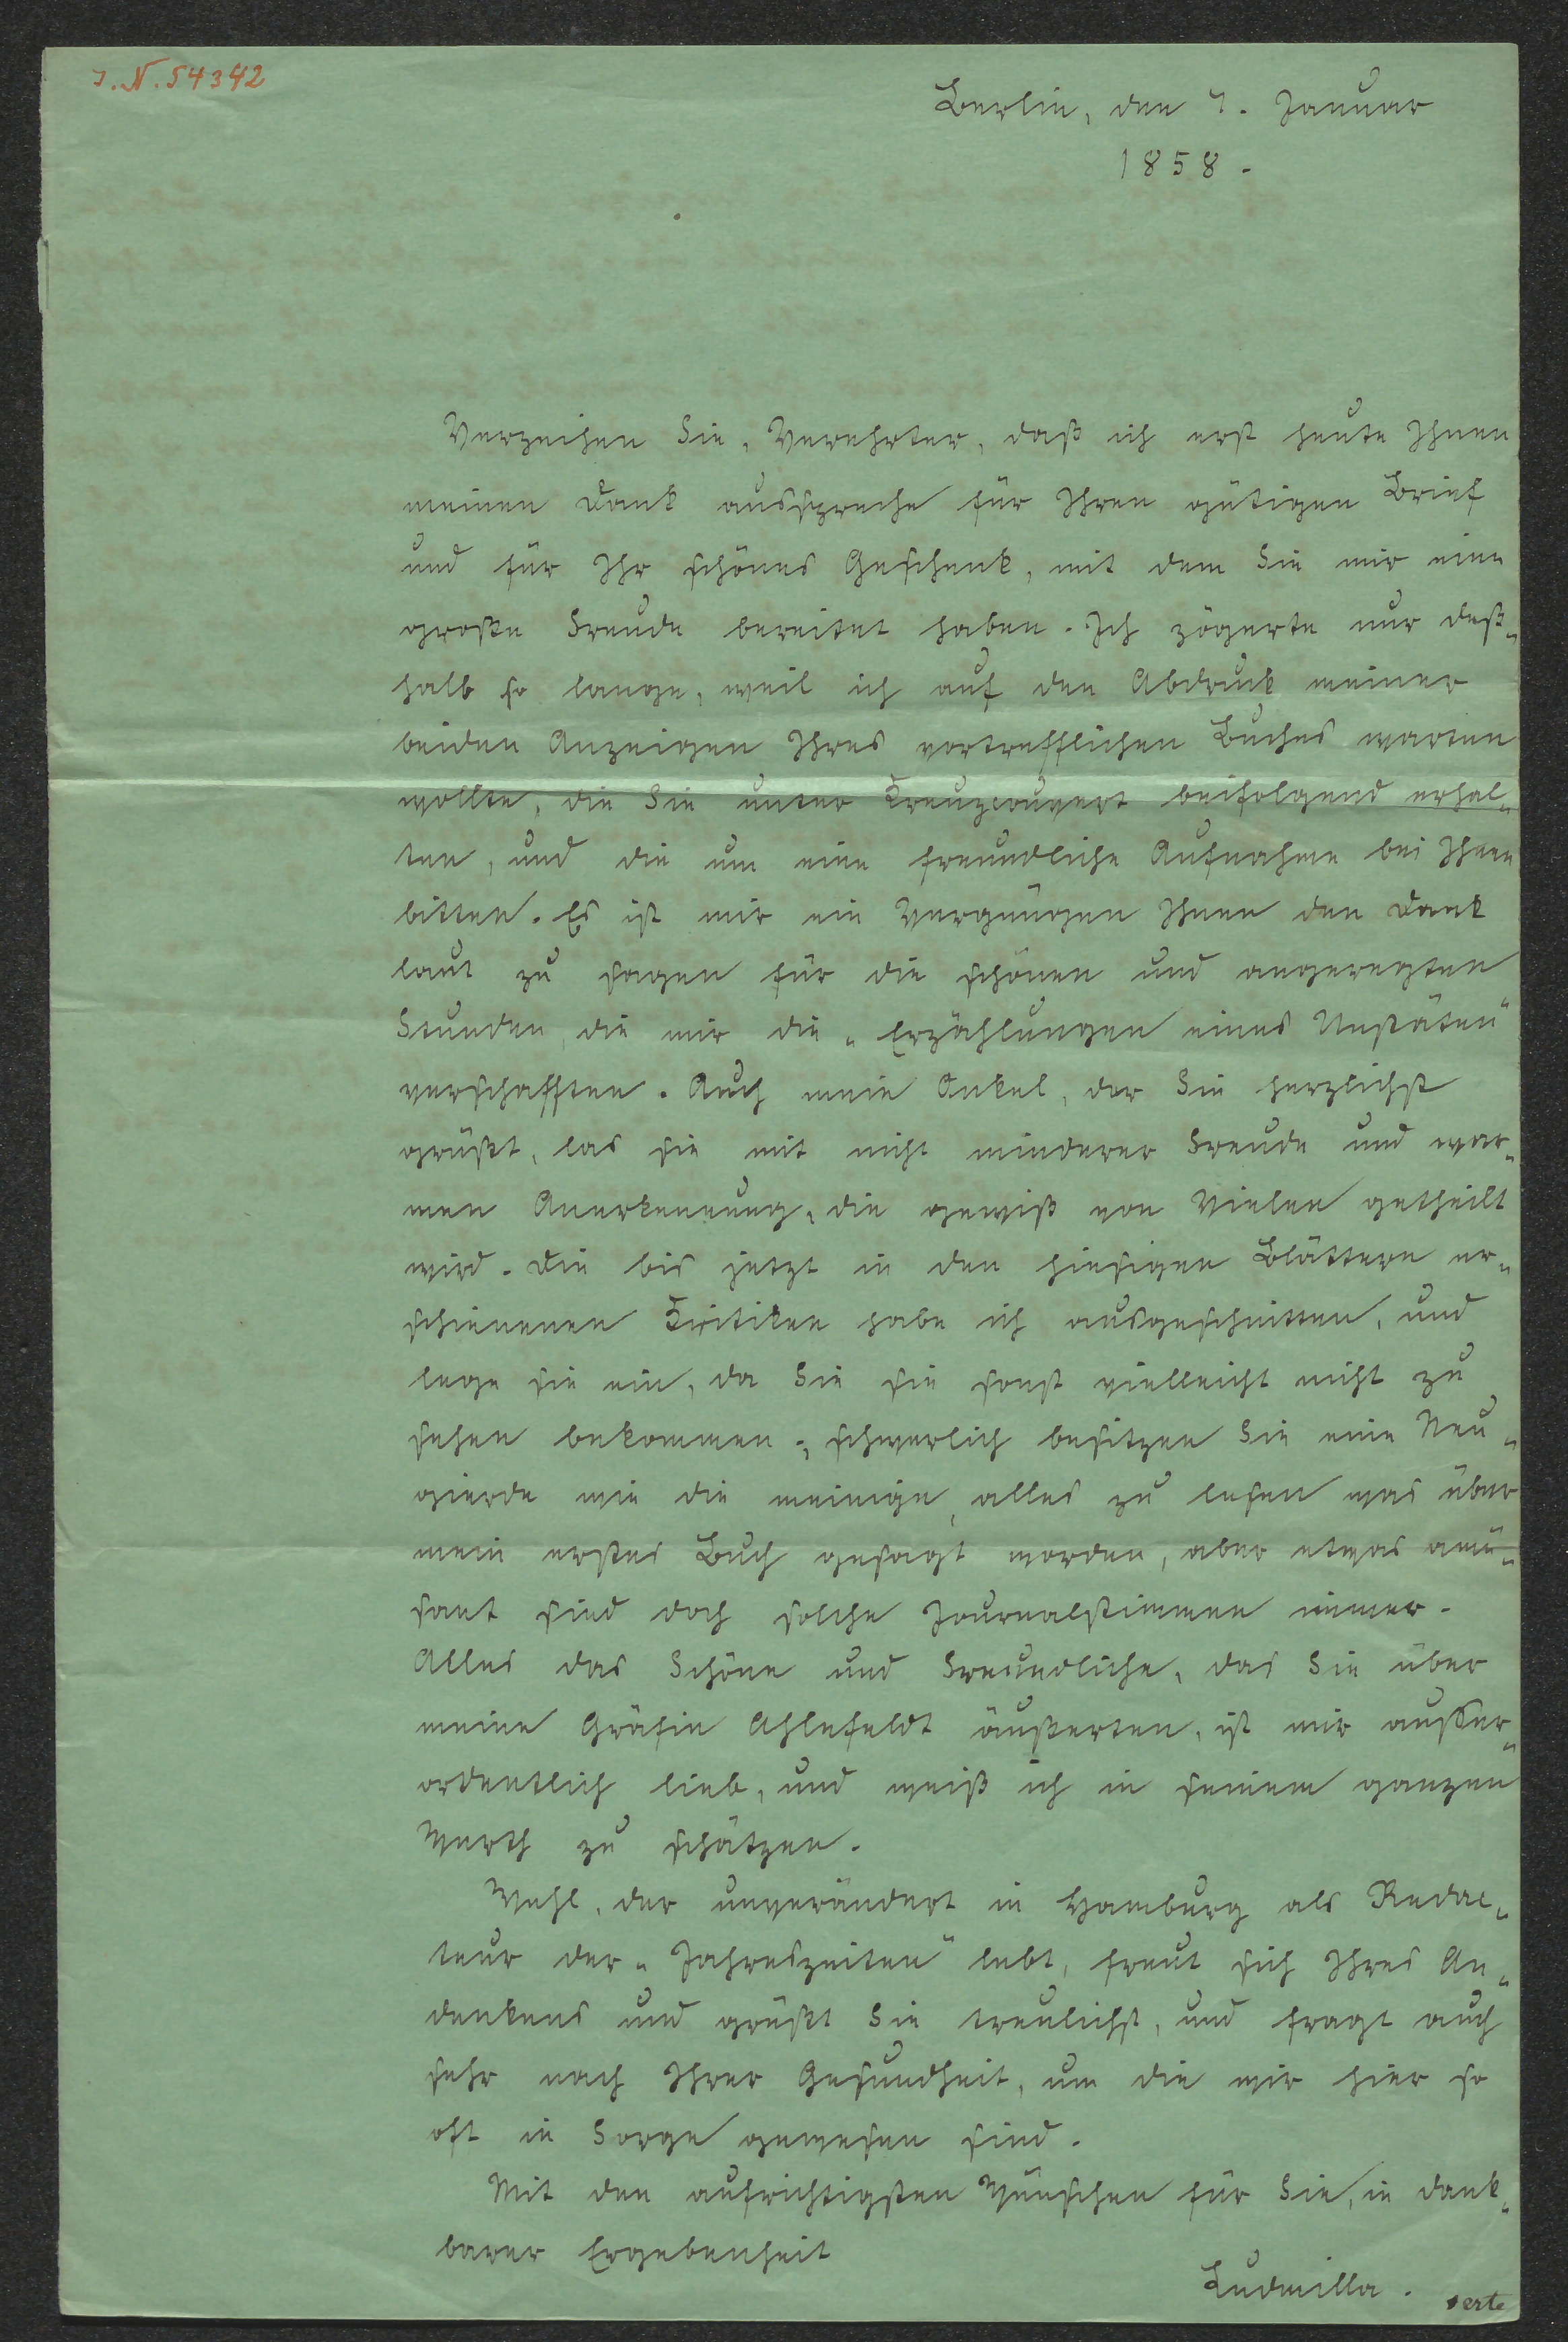 I. N. 54342
Berlin, den 7. Januar
1858.
Verzeihen Sie, Verehrter, daß ich erst heute Ihnen
meinen Dank ausspreche für Ihren gütigen Brief
und für Ihr schönes Geschenk, mit dem Sie mir eine
große Freude bereitet haben. Ich zögerte nur deß-
halb so lange, weil ich auf den Abdruck meiner
beiden Anzeigen Ihres vortrefflichen Buches warten
wollte, die Sie unter Kreuzcouvert beifolgend erhal-
ten, und die um eine freundliche Aufnahme bei Ihnen
bitten. Es ist mir ein Vergnügen Ihnen den Dank
laut zu sagen für die schönen und angeregten
Stunden, die mir die „Erzählungen eines Unstäten"
verschafften. Auch mein Onkel, der Sie herzlichst
grüßt, las sie mit nicht minderer Freude und war-
men Anerkennung, die gewiß von Vielen getheilt
wird. Die bis jetzt in den hiesigen Blättern er-
schienenen Kritiken habe ich ausgeschnitten, und
lege sie ein, da Sie sie sonst vielleicht nicht zu
sehen bekommen; schwerlich besitzen Sie eine Neu-
gierde wie die meinige, alles zu lesen was über
mein erstes Buch gesagt worden, aber etwas amü-
sant sind doch solche Journalstimmen immer.
Alles das Schöne und Freundliche, das Sie über
meine Gräfin Ahlefeldt äußerten, ist mir ausser-
ordentlich lieb, und weiß ich in seinem ganzen
Werth zu schätzen.
Wehl, der unverändert in Hamburg als Redac-
teur der „Jahreszeiten" lebt, freut sich Ihres An-
denkens und grüßt Sie treulichst, und fragt auch
sehr nach Ihrer Gesundheit, um die wir hier so
oft in Sorge gewesen sind.
Mit den aufrichtigsten Wünschen für Sie, in dank-
barer Ergebenheit
Ludmilla.
verte